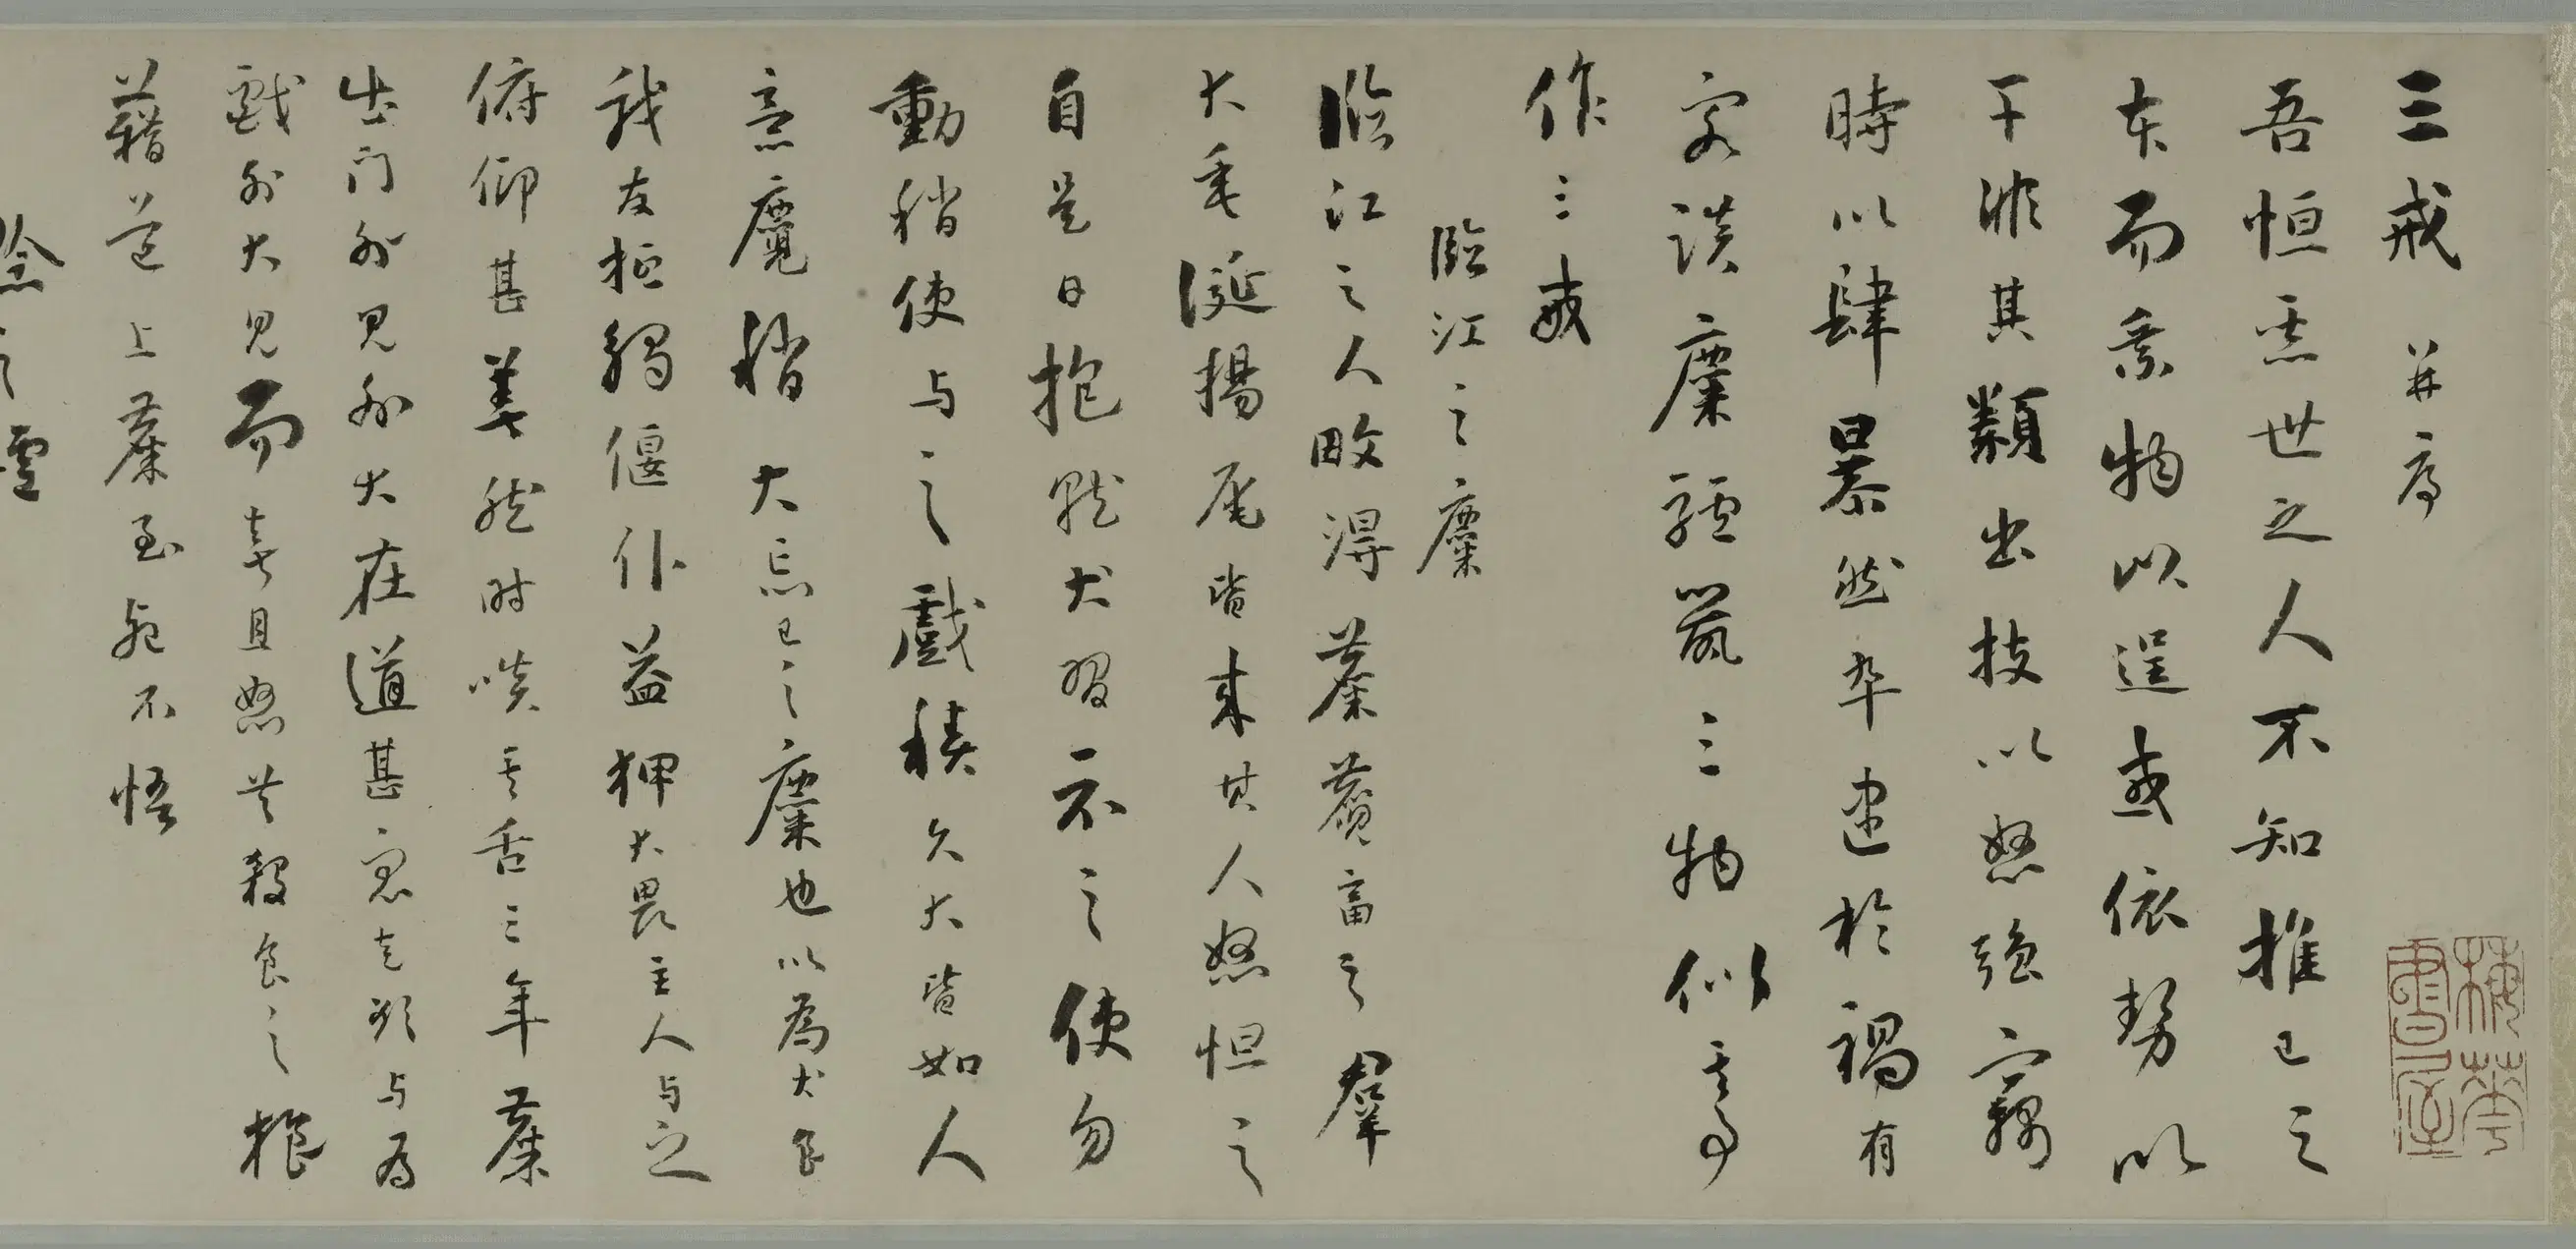 三戒 并序
吾恒惡世之人不知推己之
本而乘物以逞或依勢以
干非其類出技以怒強竊
時以肆暴然卒迨於禍有
客談麋驢鼠三物似其事
作三戒
臨江之麋
臨江之人畋得麋麑畜之羣
犬垂涎揚尾皆来其人怒怛之
自是日抱就犬習示之使勿
動稍使与之戲積久犬皆如人
意麑稍大忘己之麋也以為犬良
我友抵觸偃仆益狎犬畏主人与之
俯仰甚善然时啖其舌三年麋
出门外見外犬在道甚衆走欲与為
戲外犬見而喜且怒共殺食之狼
藉道上麋至死不悟
梅華書屋